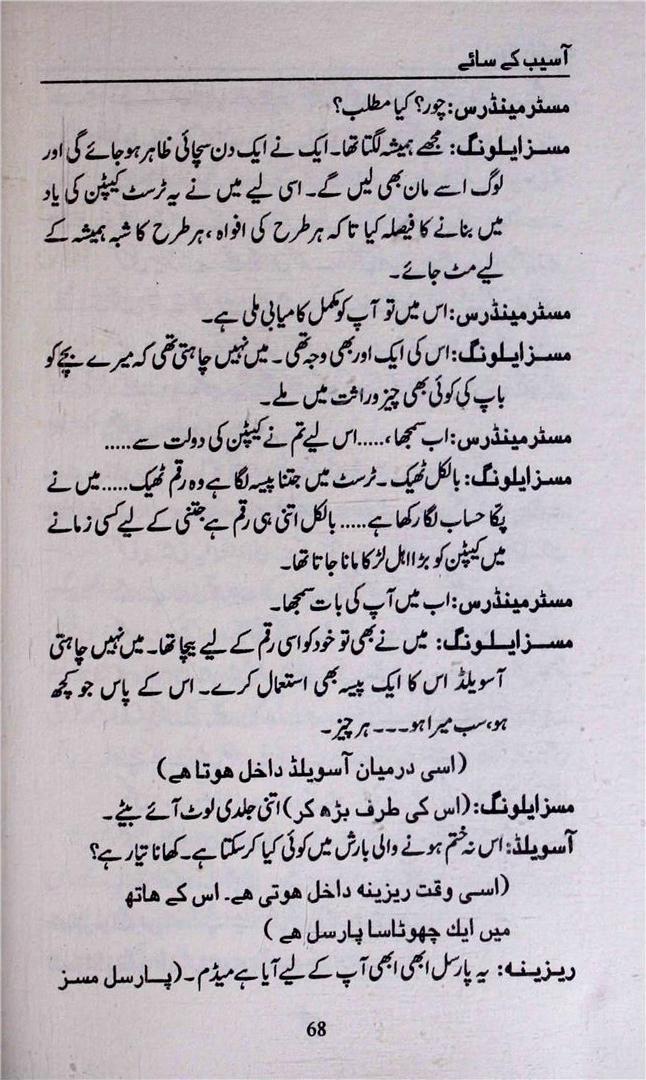 آسیب کے سائے
مسٹر مینڈرس: چور؟ کیا مطلب؟
مسز ایلونگ: مجھے ہمیشہ لگتا تھا۔ ایک نے ایک دن سچائی ظاہر ہو جائے گی اور
لوگ اسے مان بھی لیں گے۔ اسی لیے میں نے یہ ٹرسٹ کیپٹن کی یاد
میں بنانے کا فیصلہ کیا تاکہ ہر طرح کی افواہ، ہر طرح کا شبہ ہمیشہ کے
لیے مٹ جائے۔
مسٹر مینڈرس: اس میں تو آپ کو مکمل کامیابی ملی ہے۔
مسز ایلونگ: اس کی ایک اور بھی وجہ تھی۔ میں نہیں چاہتی تھی کہ میرے بچے کو
باپ کی کوئی بھی چیز وراثت میں ملے۔
مسٹر مینڈرس: اب سمجھا،..... اس لیے تم نے کیپٹن کی دولت سے.....
مسز ایلونگ: بالکل ٹھیک۔ ٹرسٹ میں جتنا پیسہ لگا ہے وہ رقم ٹھیک..... میں نے
پکا حساب لگا رکھا ہے..... بالکل اتنی ہی رقم ہے جتنی کے لیے کسی زمانے
میں کیپٹن کو بڑا اہل لڑکا مانا جاتا تھا۔
مسٹر مینڈرس: اب میں آپ کی بات سمجھا۔
مسز ایلونگ: میں نے بھی تو خود کو اسی رقم کے لیے بیچا تھا۔ میں نہیں چاہتی
آسویلڈ اس کا ایک پیسہ بھی استعمال کرے۔ اس کے پاس جو کچھ
ہو، سب میرا ہو۔۔۔ ہر چیز۔
(اسی درمیان آسویلڈ داخل ہوتا ہے)
مسز ایلونگ: (اس کی طرف بڑھ کر) اتنی جلدی لوٹ آئے بیٹے۔
آسویلڈ: اس نہ ختم ہونے والی بارش میں کوئی کیا کر سکتا ہے۔ کھانا تیار ہے؟
(اسی وقت ریزینہ داخل ہوتی ہے۔ اس کے ہاتھ
میں ایک چھوٹا سا پارسل ہے)
ریزینہ: یہ پارسل ابھی ابھی آپ کے لیے آیا ہے میڈم۔ (پارسل مسز
68